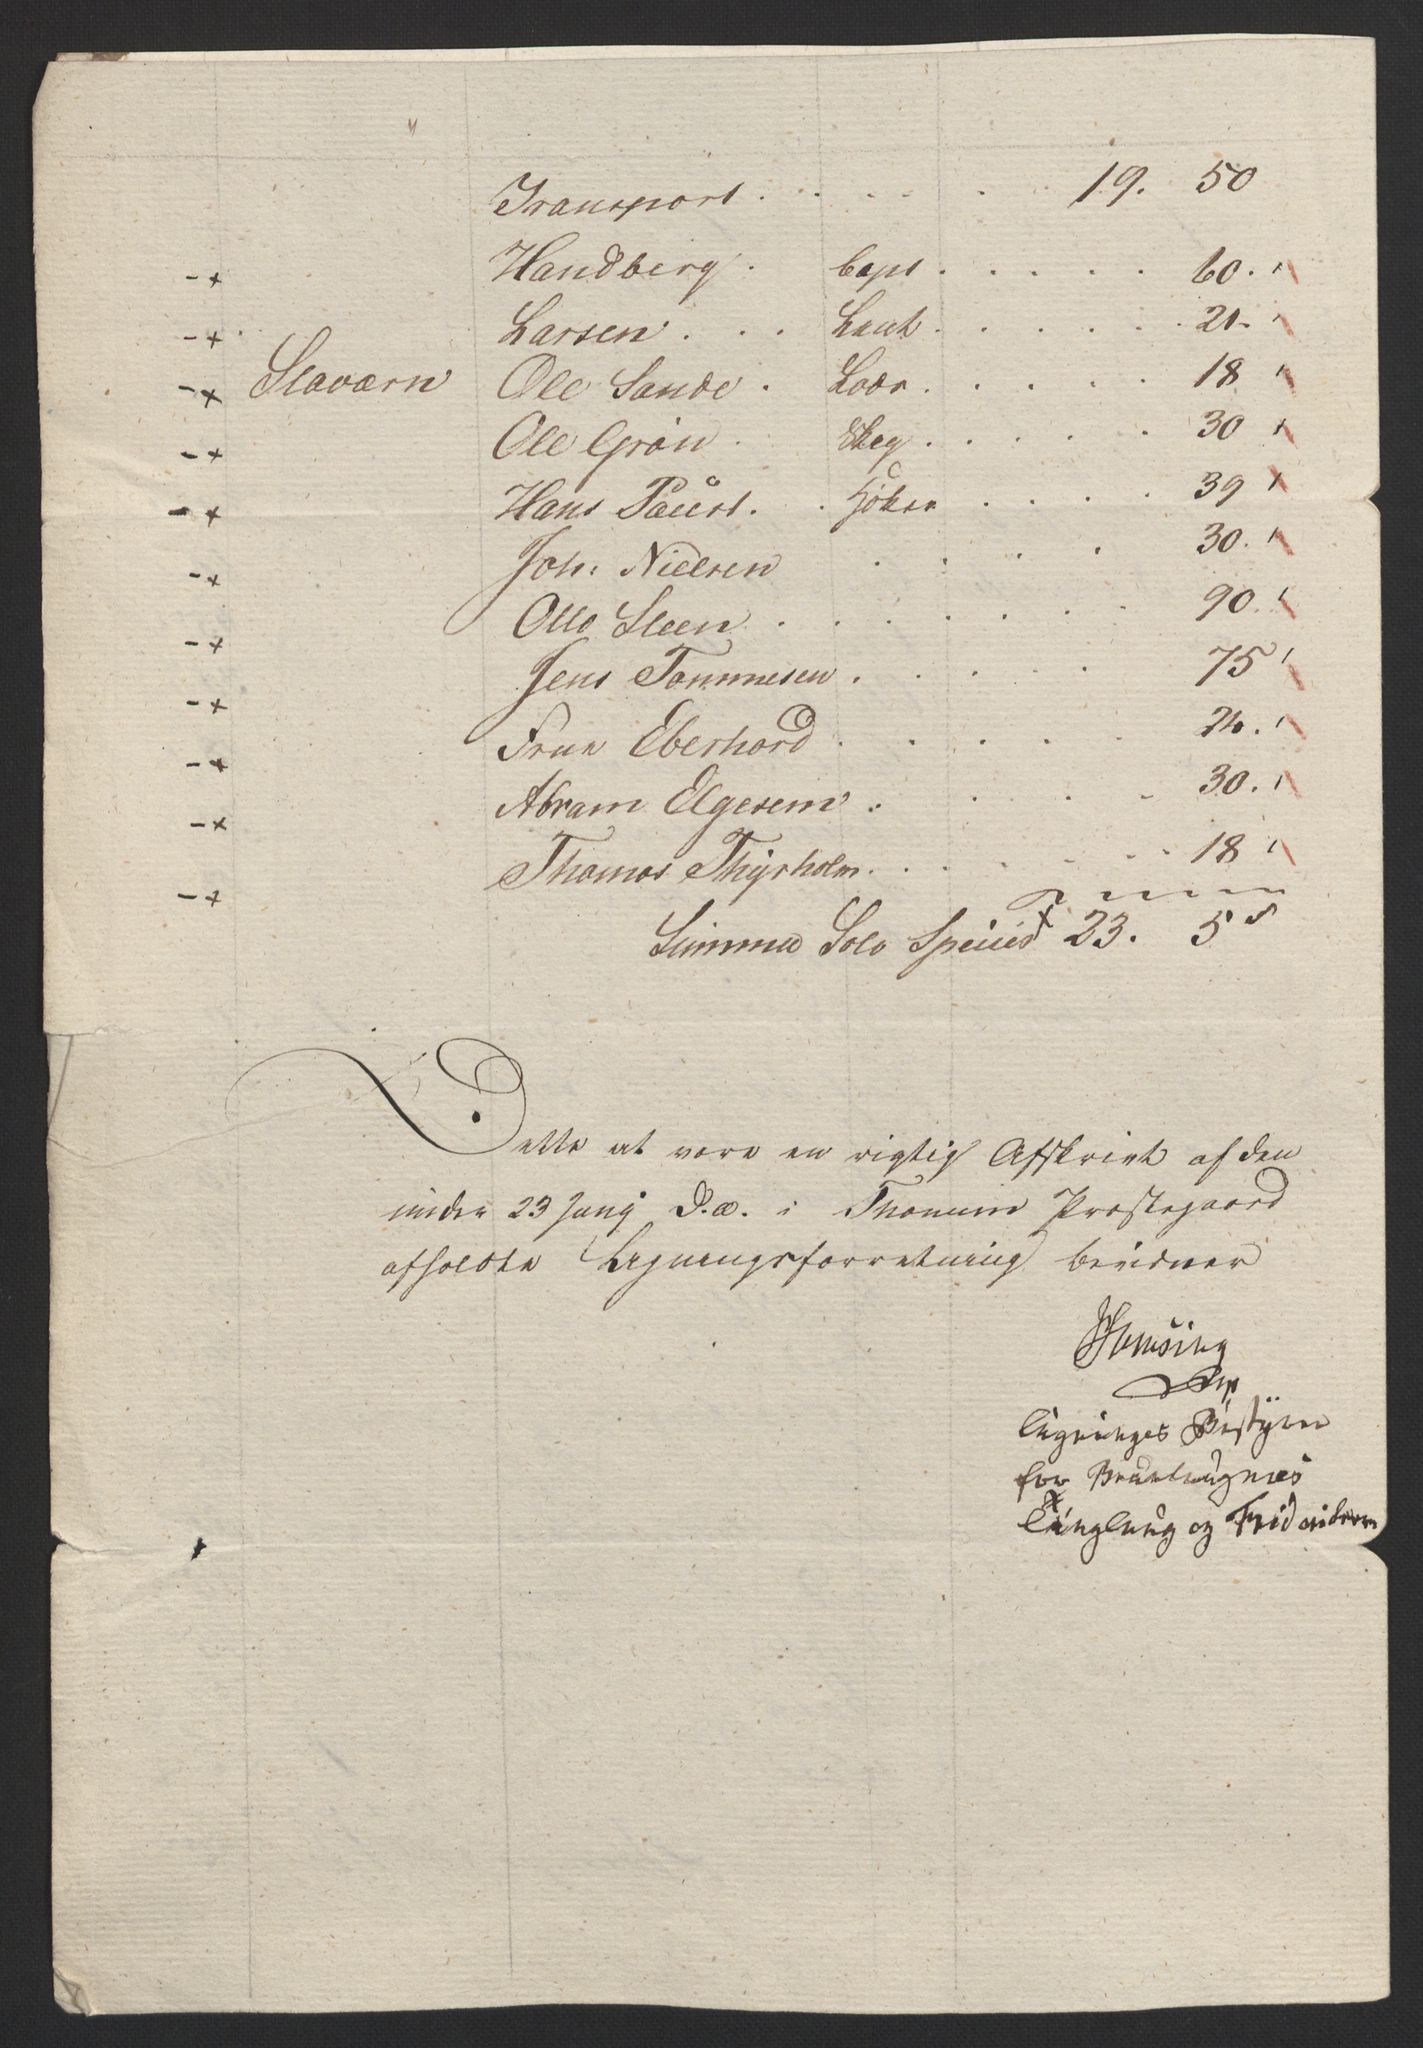 Transport . . . . . 19. 50
-+ Handberg . Capt . . . . . 60.
-+ Larsen . . . Leut . . . . . 21.
-+ Staværn Ole Sande . Lods . . . . . 18
-+ Ole Grøn . . . . . . 30
-+ Hans Paust . . . . . . 39
-+ Joh: Nielsen . . . . 30.
-+ Otto Steen . . . . . . . 90.
-+ Jens Tommesen . . . . . 75
-+ Frue Eberhard . . . . . 24.
-+ Abram Elgesem . . . . 30.
-+ Thomas Thyrholm . . . . . 18
Summa Sølv Species 23. 5 s
Dette at være en rigtig Afskrivt af den
under 23 Junÿ D.A. i Thanum Præstegaard
afholdte Ligningsforretning bevidner
Lignings Bestÿrer
for Brunlaugnes
og Fridrichsværn